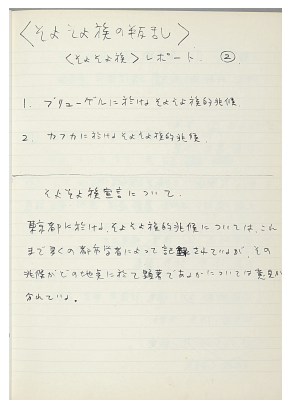 〈そよそよ族の叛乱〉
〈そよそよ族〉レポート. ②.
1. ブリューゲルに於けるそよそよ族的兆候.
2. カフカに於けるそよそよ族的兆候.
そよそよ族宣言について.
東京都に於ける、そよそよ族的兆候については、これ
まで多くの都市学者によって記録されているが、その
兆候がどの地点に於て顕著であるかについては意見が
分れている。